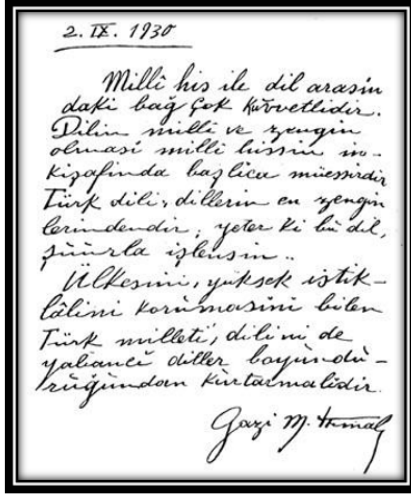 2. IX. 1930
Millî his ile dil arasın
daki bağ çok kuvvetlidir.
Dilin millî ve zengin
olması millî hissin in-
kişafında başlıca müessirdir
Türk dili, dillerin en zengin
lerindendir, yeter ki bu dil,
şuurla işlensin..
Ülkesini, yüksek istik-
lâlini korumasını bilen
Türk milleti, dilini de
yabancı diller boyundu-
ruğundan kurtarmalıdır.
Gazi M. Kemal